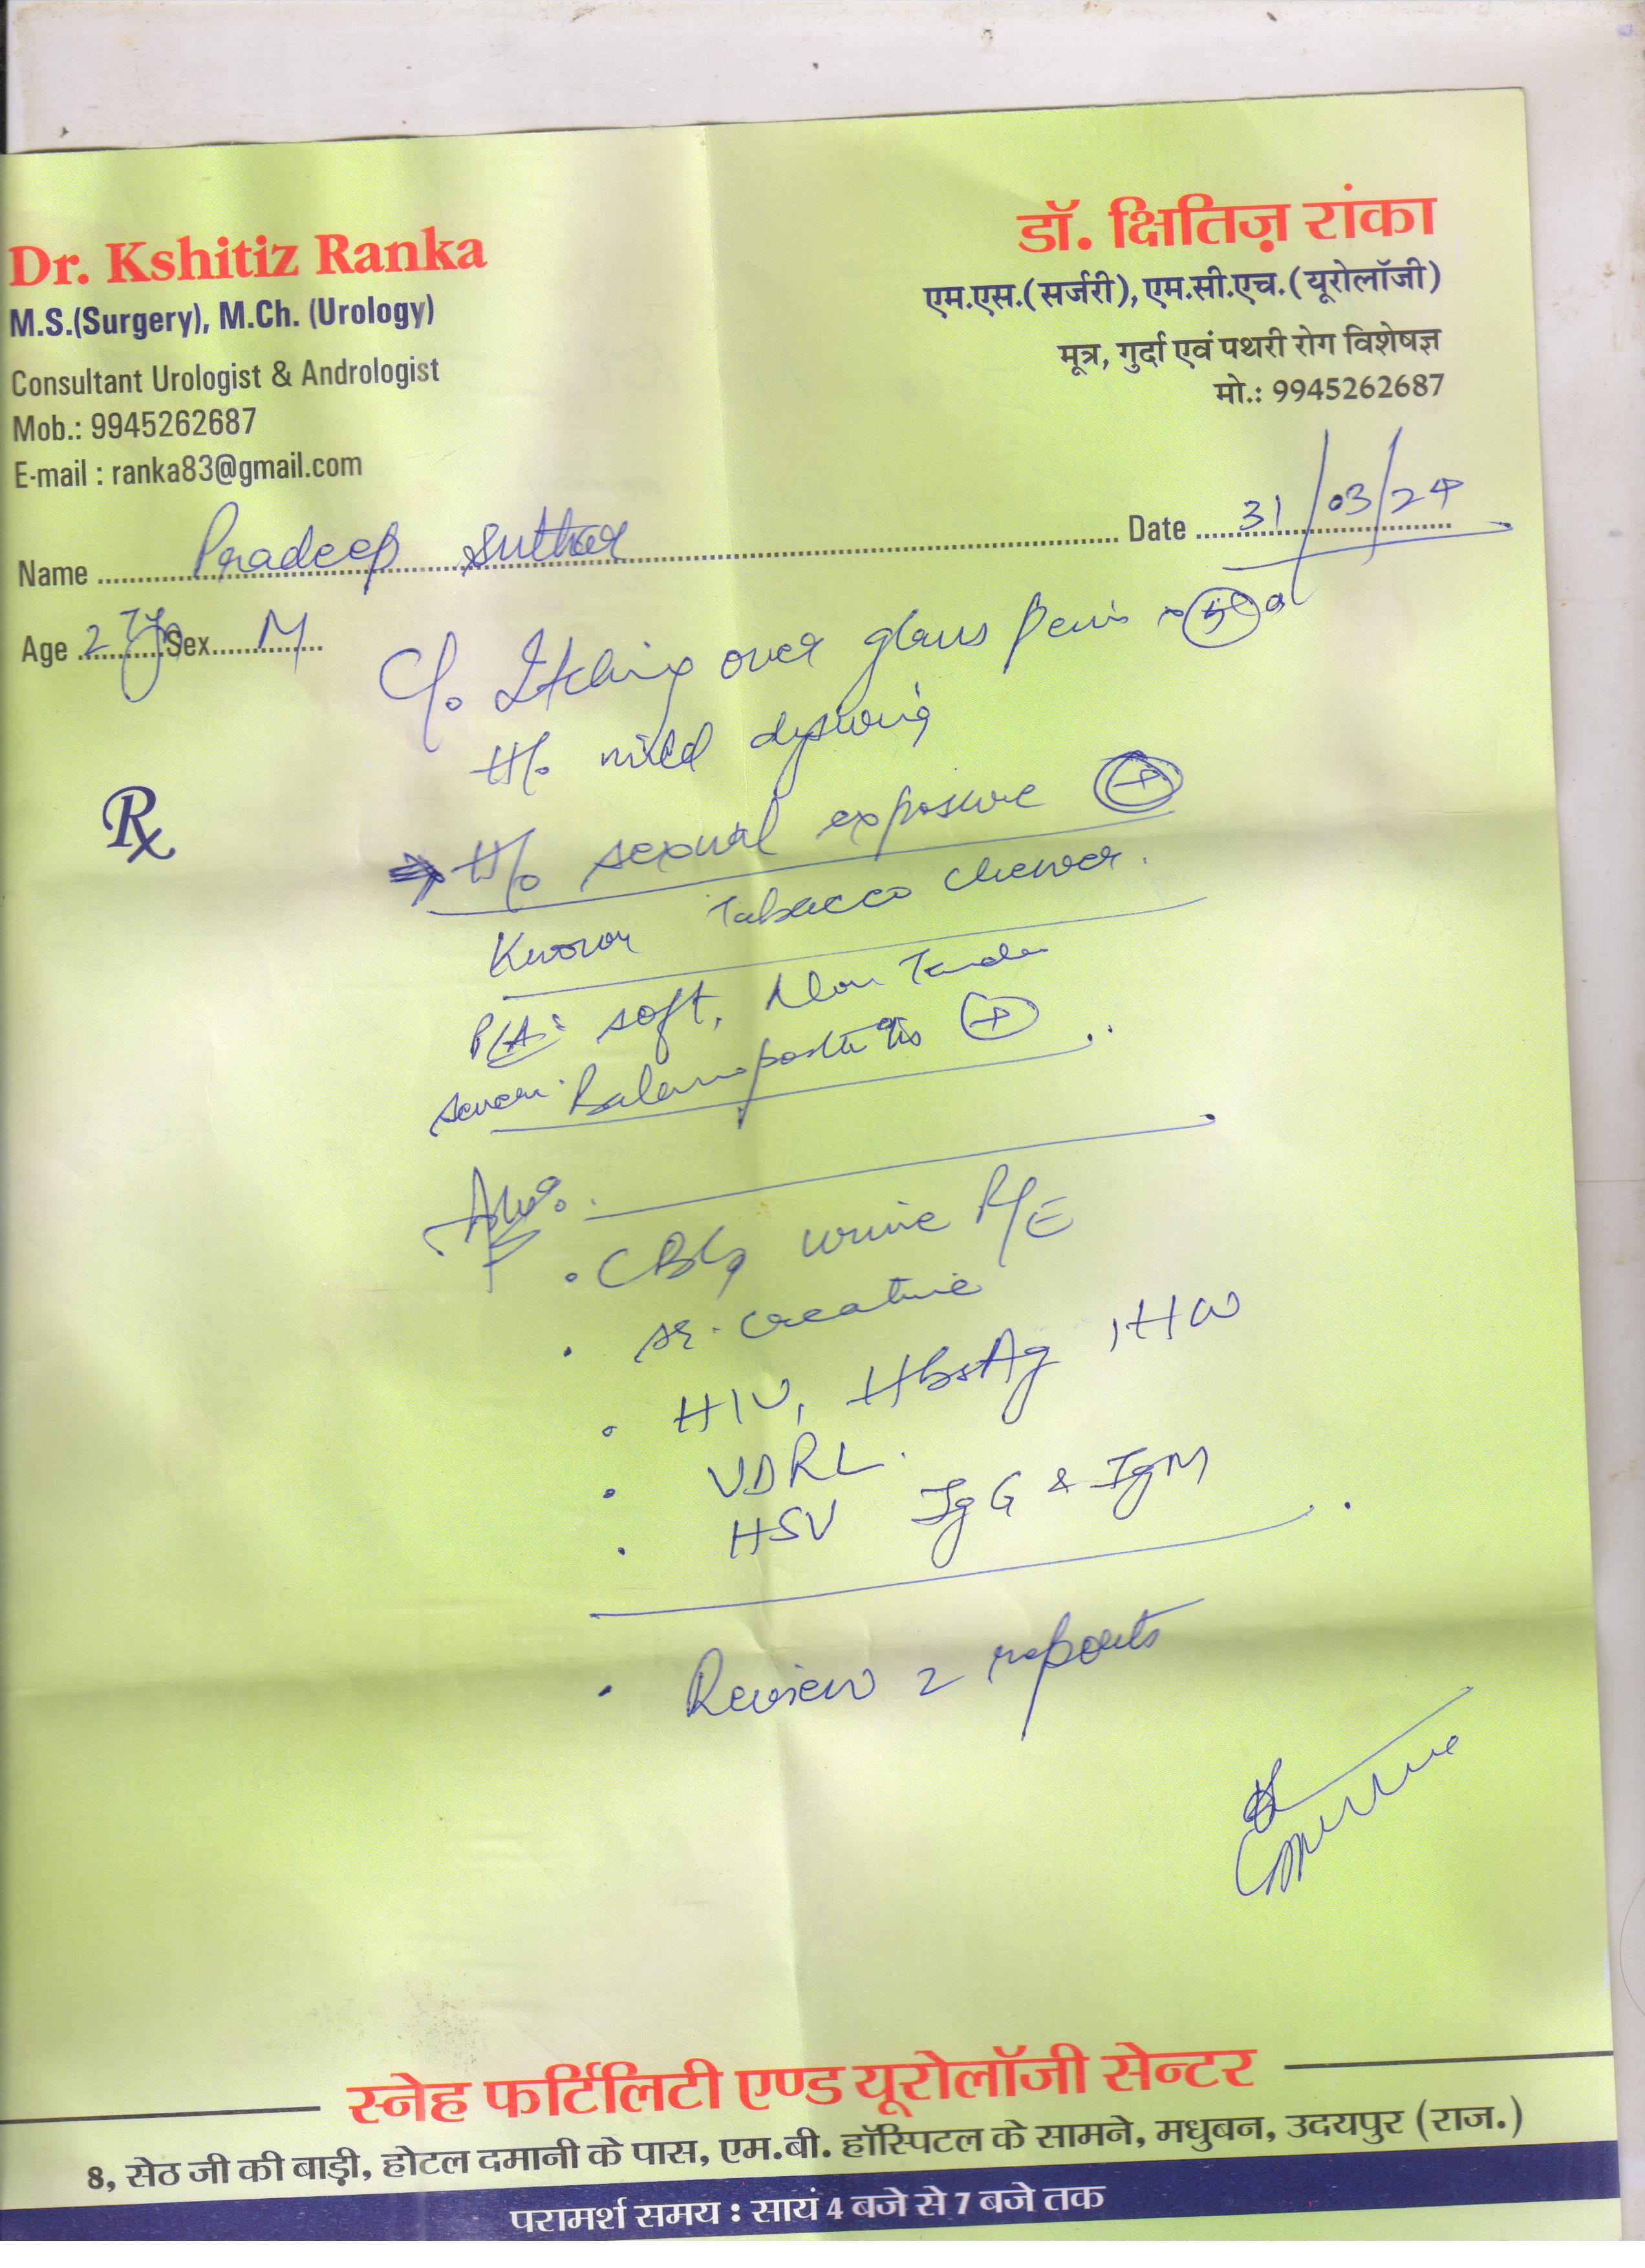 Dr. Kshitiz Ranka
M.S.(Surgery), M.Ch. (Urology)
Consultant Urologist & Andrologist
Mob.: 9945262687
E-mail : ranka83@gmail.com
डॉ. क्षितिज़ रांका
एम.एस.(सर्जरी), एम.सी.एच.(यूरोलॉजी)
मूत्र, गुर्दा एवं पथरी रोग विशेषज्ञ
मो.: 9945262687
Name Pradeep Suthar Date 31/03/24
Age 27y Sex M
C/o Itching over glans Penis
H/o mild dysuria
H/o sexual exposure +
Known Tobacco chewer.
P/A: soft, Non Tender
Balanoposthitis +
Adv.
CBC, urine R/E
Sr. Creatinine
HIV, HbsAg, HCV
VDRL.
HSV IgG & IgM
Review reports
स्नेह फर्टिलिटी एण्ड यूरोलॉजी सेन्टर
8, सेठ जी की बाड़ी, होटल दमानी के पास, एम.बी. हॉस्पिटल के सामने, मधुबन, उदयपुर (राज.)
परामर्श समय : सायं 4 बजे से 7 बजे तक